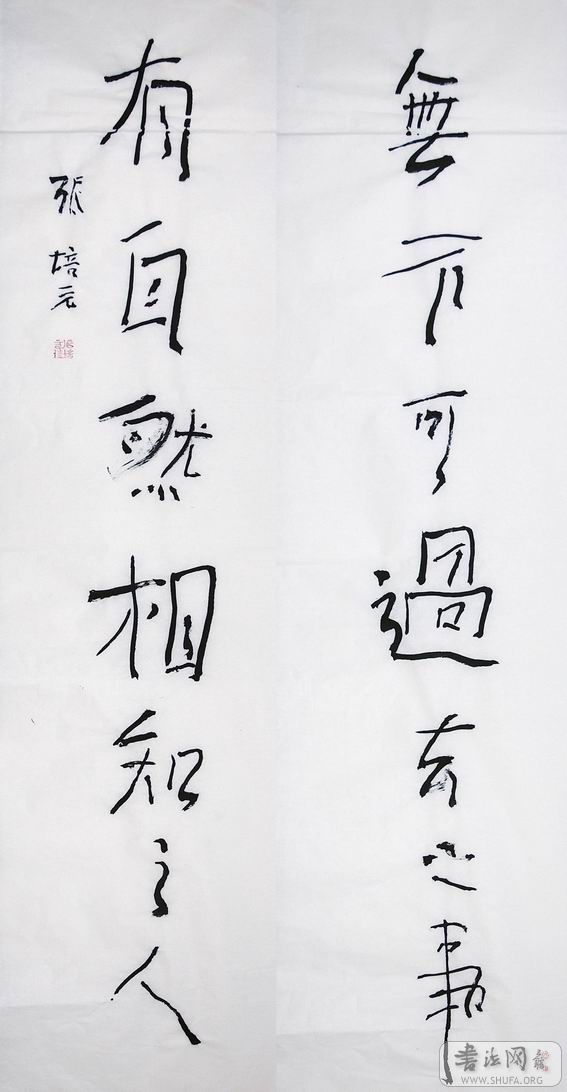 無不可過去之事
有自然相知之人
張培元
書法网
WWW.SHUFA.ORG